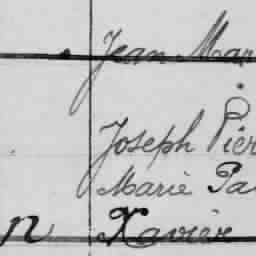 Jean Mar
Joseph Pier
Marie Pa
n Xavière